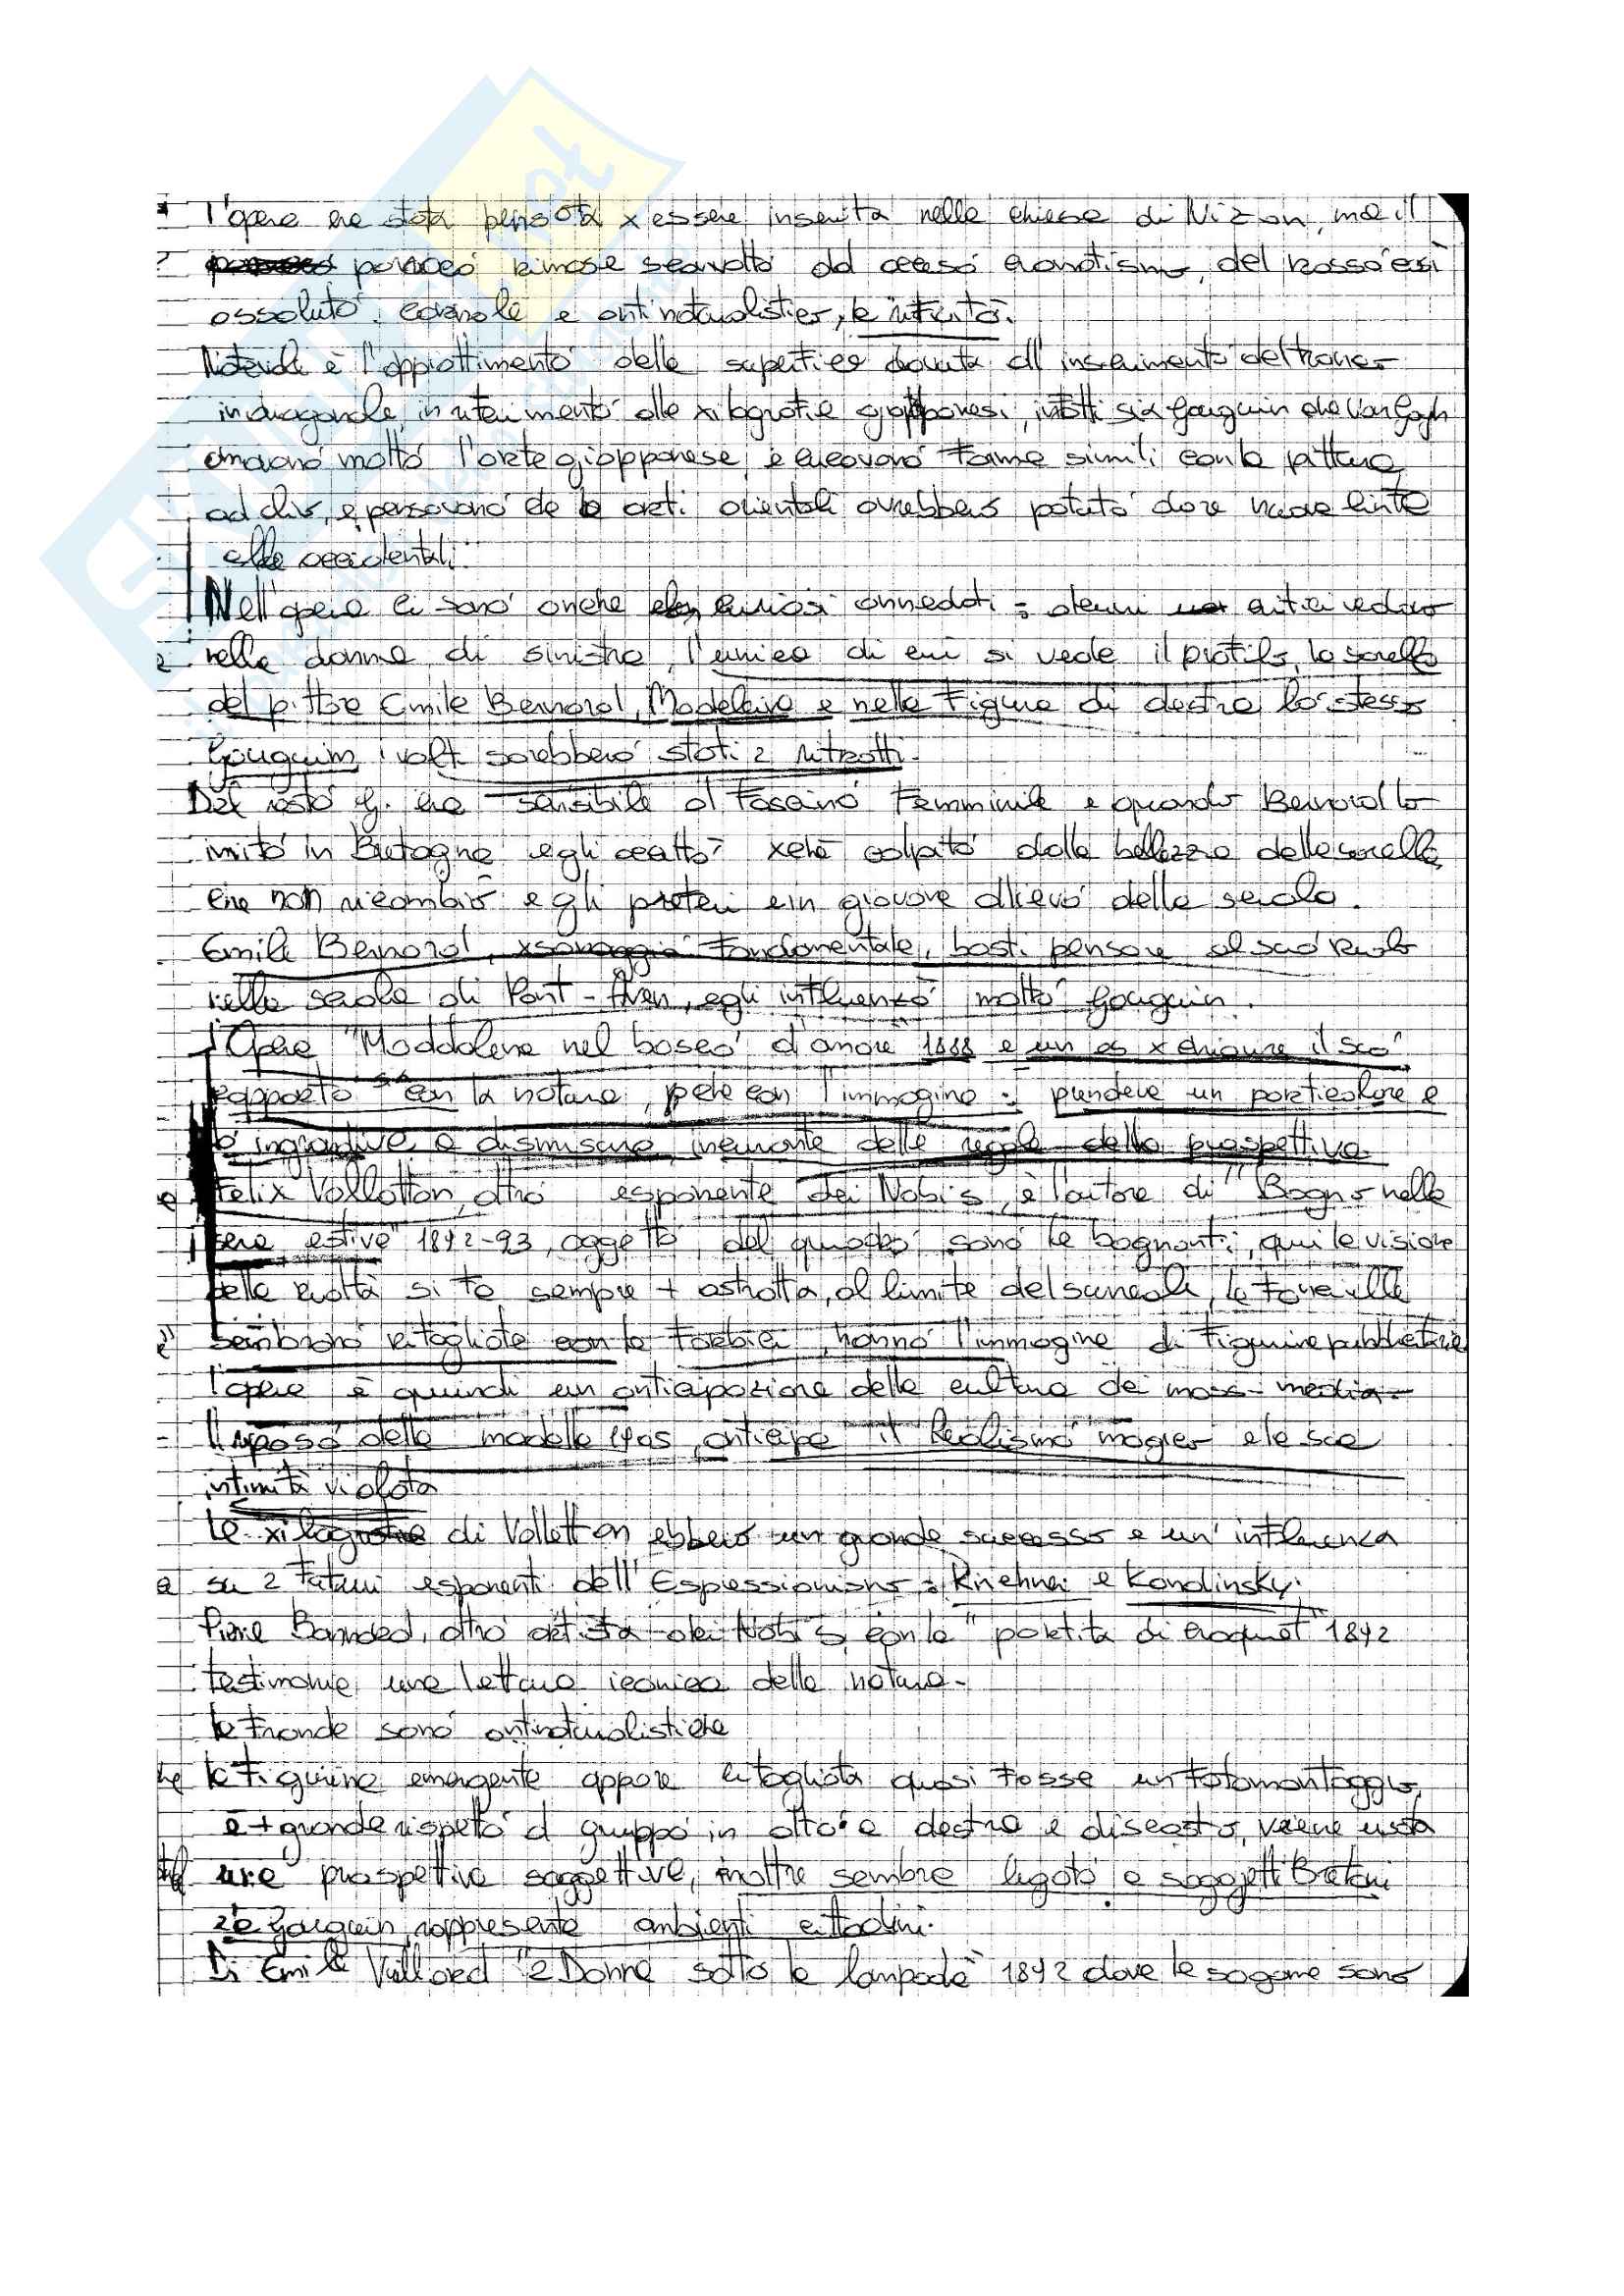 l'opera era stata pensata x essere inserita nella chiesa di Nizon, ma il
parroco rimase sconvolto dal acceso cromatismo, del rosso così
assoluto, carnale e antinaturalistico, la rifiutò.
Notevole è l'appiattimento della superficie dovuta all'inserimento del tronco
in diagonale, in riferimento alle xilografie giapponesi, infatti sia Gauguin che Van Gogh
amavano molto l'arte giapponese, e cercavano forme simili con la pittura
ad olio, e pensavano che le arti orientali avrebbero potuto dare nuova linfa
alle occidentali.
Nell'opera ci sono anche curiosi anneddoti: alcuni critici vedono
nella donna di sinistra, l'unica di cui si vede il profilo, la sorella
del pittore Emile Bernard, Madelaine e nella figura di destra lo stesso
Gauguin, i volti sarebbero stati 2 ritratti.
Del resto G. era sensibile al fascino femminile e quando Bernard lo
invitò in Bretagna egli accettò xchè colpito dalla bellezza della sorella,
che non ricambiò e gli preferì un giovane allievo della scuola.
Emile Bernard, xsonaggio fondamentale, basti pensare al suo ruolo
nella scuola di Pont-Aven, egli influenzò molto Gauguin.
L'Opera "Maddalena nel bosco d'amore 1888 è un es x chiarire il suo
rapporto con la natura, e con l'immagine: prendere un particolare e
lo ingrandire a dismisura, incurante delle regole della prospettiva.
Felix Vallotton, altro esponente dei Nabis, è l'autore di "Bagno nella
sera estiva" 1892-93, oggetto del quadro sono le bagnanti, qui la visione
della realtà si fa sempre + astratta, al limite del surreale, le fanciulle
sembrano ritagliate con le forbici, hanno l'immagine di figurine pubblicitarie
l'opera è quindi un anticipazione della cultura dei mass-media.
Il riposo delle modelle 1905, anticipa il Realismo magico e la sua
intimità violata
Le xilografie di Vallotton ebbero un grande successo e un'influenza
su 2 futuri esponenti dell'Espressionismo: Kirchner e Kandinsky.
Pierre Bonnard, altro artista dei Nabis, con la "partita di croquet" 1892
testimonia una lettura iconica della natura.
le fronde sono antinaturalistiche
la figurina emergente appare ritagliata quasi fosse un fotomontaggio,
è + grande rispetto al gruppo in alto a destra e discosto, viene usata
una prospettiva soggettiva, inoltre sembra legato a soggetti Bretoni
Gauguin, rappresenta ambienti cittadini.
Di Emile Vuillard "2 Donne sotto la lampada" 1892 dove le sagome sono